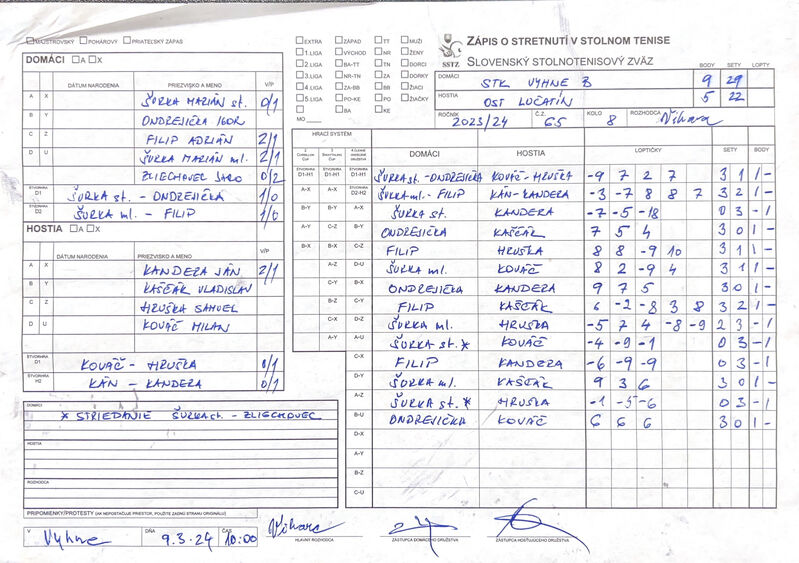 MAJSTROVSKÝ POHÁROVÝ PRIATEĽSKÝ ZÁPAS
EXTRA ZÁPAD TT MUŽI
1.LIGA VÝCHOD NR ŽENY
2.LIGA BA-TT TN DORCI
3.LIGA NR-TN ZA DORKY
4.LIGA ZA-BB BB ŽIACI
5.LIGA PO-KE PO ŽIAČKY
MO BA KE
SSTZ
ZÁPIS O STRETNUTÍ V STOLNOM TENISE
SLOVENSKÝ STOLNOTENISOVÝ ZVÄZ BODY SETY LOPTY
DOMÁCI STK VYHNE B 9 29
HOSTIA OST LUČATÍN 5 22
ROČNÍK 2023/24 Č.Z. 65 KOLO 8 ROZHODCA Víhara
DOMÁCI A X
DÁTUM NARODENIA PRIEZVISKO A MENO V/P
A X ŠURKA MARIÁN st. 0/1
B Y ONDREJIČKA IGOR
C Z FILIP ADRIÁN 2/1
D U ŠURKA MARIÁN ml. 2/1
ZLIECHOVEC JARO 0/2
ŠTVORHRA D1 ŠURKA st. - ONDREJIČKA 1/0
ŠTVORHRA D2 ŠURKA ml. - FILIP 1/0
HOSTIA A X
DÁTUM NARODENIA PRIEZVISKO A MENO V/P
A X KANDERA JÁN 2/1
B Y KAŠČÁK VLADISLAV
C Z HRUŠKA SAMUEL
D U KOVÁČ MILAN
ŠTVORHRA D1 KOVÁČ - HRUŠKA 0/1
ŠTVORHRA H2 KÁN - KANDERA 0/1
HRACÍ SYSTÉM
DOMÁCI HOSTIA LOPTIČKY SETY BODY
ŠTVORHRA D1-H1 ŠTVORHRA D1-H1 ŠTVORHRA D1-H1 ŠURKA st. - ONDREJIČKA KOVÁČ - HRUŠKA -9 7 2 7 3 1 1 -
A-X A-X ŠTVORHRA D2-H2 ŠURKA ml. - FILIP KÁN - KANDERA -3 -7 8 8 7 3 2 1 -
B-Y B-Y A-X ŠURKA st. KANDERA -7 -5 -18 0 3 - 1
A-Y C-Z B-Y ONDREJIČKA KAŠČÁK 7 5 4 3 0 1
B-X B-X C-Z FILIP HRUŠKA 8 8 -9 10 3 1 1 -
A-Z D-U ŠURKA ml. KOVÁČ 8 2 -9 4 3 1 1 -
C-X B-X ONDREJIČKA KANDERA 9 7 5 3 0 1 -
B-Z C-Y FILIP KAŠČÁK 6 -2 -8 3 8 3 2 1 -
C-X D-Z ŠURKA ml. HRUŠKA -5 7 4 -8 -9 2 3 - 1
A-Y A-U ŠURKA st.* KOVÁČ -4 -9 -1 0 3 - 1
C-X FILIP KANDERA -6 -9 -9 0 3 - 1
D-Y ŠURKA ml. KAŠČÁK 9 3 6 3 0 1 -
A-Z ŠURKA st.* HRUŠKA -1 -5 -6 0 3 - 1
B-U ONDREJIČKA KOVÁČ 6 6 6 3 0 1 -
D-X
A-Y
B-Z
C-U
DOMÁCI
* STRIEDANIE ŠURKA st. - ZLIECHOVEC
HOSTIA
ROZHODCA
PRIPOMIENKY/PROTESTY (AK NEPOSTAČUJE PRIESTOR, POUŽITE ZADNÚ STRANU ORIGINÁLU)
V Vyhne DŇA 9.3.24 ČAS 10:00
Víhara
HLAVNÝ ROZHODCA ZÁSTUPCA DOMÁCEHO DRUŽSTVA ZÁSTUPCA HOSŤUJÚCEHO DRUŽSTVA